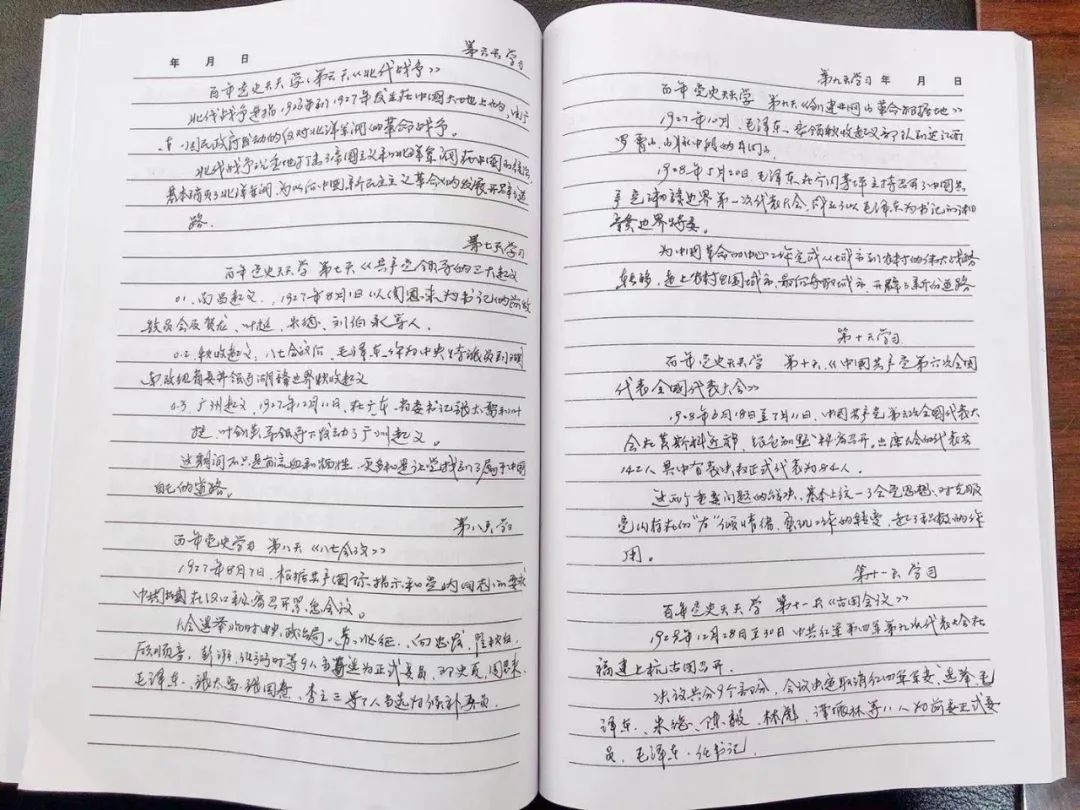 年 月 日
第六天学习
百年党史天天学 第六天《北伐战争》
北伐战争是指1926年到1927年发生在中国大地上的，由广
国民政府发动的反对北洋军阀的革命战争。
北伐战争沉重地打击了帝国主义和北洋军阀在中国的统治，
基本消灭了北洋军阀，为以后中国新民主主义革命的发展开辟了道
路.
第七天学习
百年党史天天学 第七天《共产党领导的三大起义
01. 南昌起义，1927年8月1日以周恩来为书记的前敌
委员会及贺龙、叶挺、朱德、刘伯承等人.
0.2. 秋收起义，八七会议后，毛泽东作为中央特派员到湖
南改组省委并领导湖赣边界秋收起义
0.3. 广州起义，1927年12月11日，在广东省委书记张太雷和叶
挺、叶剑英等领导下发动了广州起义。
这期间不只是有流血和牺牲，更多的是让党找到了属于中国
自己的道路。
第八天学习
百年党史学习 第八天《八七会议》
1927年8月7日，根据共产国际指示和党内同志的要求
中共中央在汉口秘密召开紧急会议。
大会选举临时中央政治局，苏兆征、向忠发、瞿秋白、
顾顺章、彭湃、任弼时等9人当选为正式委员，邓中夏、周恩来、
毛泽东、张太雷、张国焘、李立三等7人当选为候补委员.
第九天学习 年 月 日
百年党史天天学 第九天《创建井冈山革命根据地》
1927年10月，毛泽东率领秋收起义部队到达江西
罗霄山脉中段的井冈山
1928年5月20日，毛泽东在宁冈茅坪主持召开了中国共
产党湘赣边界第一次代表大会，成立了以毛泽东为书记的湘
赣边界特委。
为中国革命的中心工作完成从城市到农村的伟大战略
转移，走上农村包围城市，最后夺取城市，开辟了新的道路
第十天学习
百年党史天天学 第十天《中国共产党第六次全国
代表全国代表大会》
1928年6月18日至7月11日，中国共产党第六次全国代表大
会在莫斯科近郊 秘密召开。出席大会的代表共
142人，其中有表决权正式代表为84人.
这两个重要问题的解决，基本上统一了全党思想，对克服
党内存在的“左”倾情绪，实现工作的转变，起了积极的作
用。
第十一天学习
百年党史天天学 第十一天《古田会议》
1929年12月28日至30日 中共红军第四军第九次代表大会在
福建上杭古田召开.
决议共分9个部分，会议决定取消红四军军委，选举毛
泽东、朱德、陈毅、林彪、谭震林等11人为前委正式委
员，毛泽东任书记.